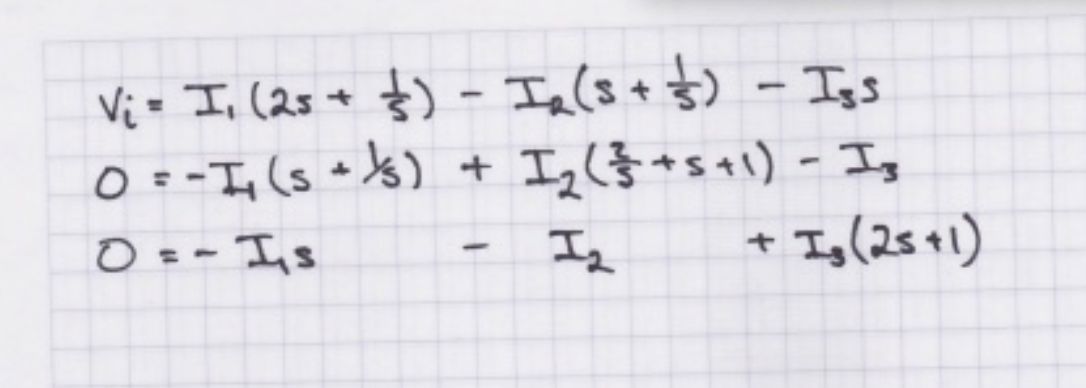 Vi = I₁(2s + 1/s) - I₂(s + 1/s) - I₃s
0 = -I₁(s + 1/s) + I₂(2/s + s + 1) - I₃
0 = - I₁s - I₂ + I₃(2s + 1)